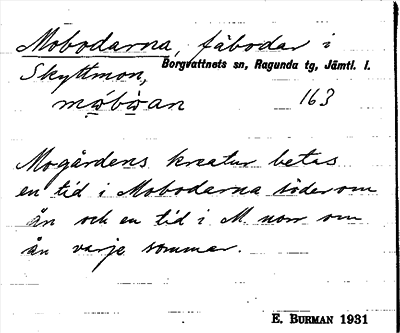 Mobodarna, fäbodar i
Borgvattnets sn, Ragunda tg, Jämtl. l.
Skyttmon,
mə̀bòan 163
Mogårdens kreatur betas
en tid i Mobodarna söder om
ån och en tid i M. norr om
ån varje sommar.
E. BURMAN 1931